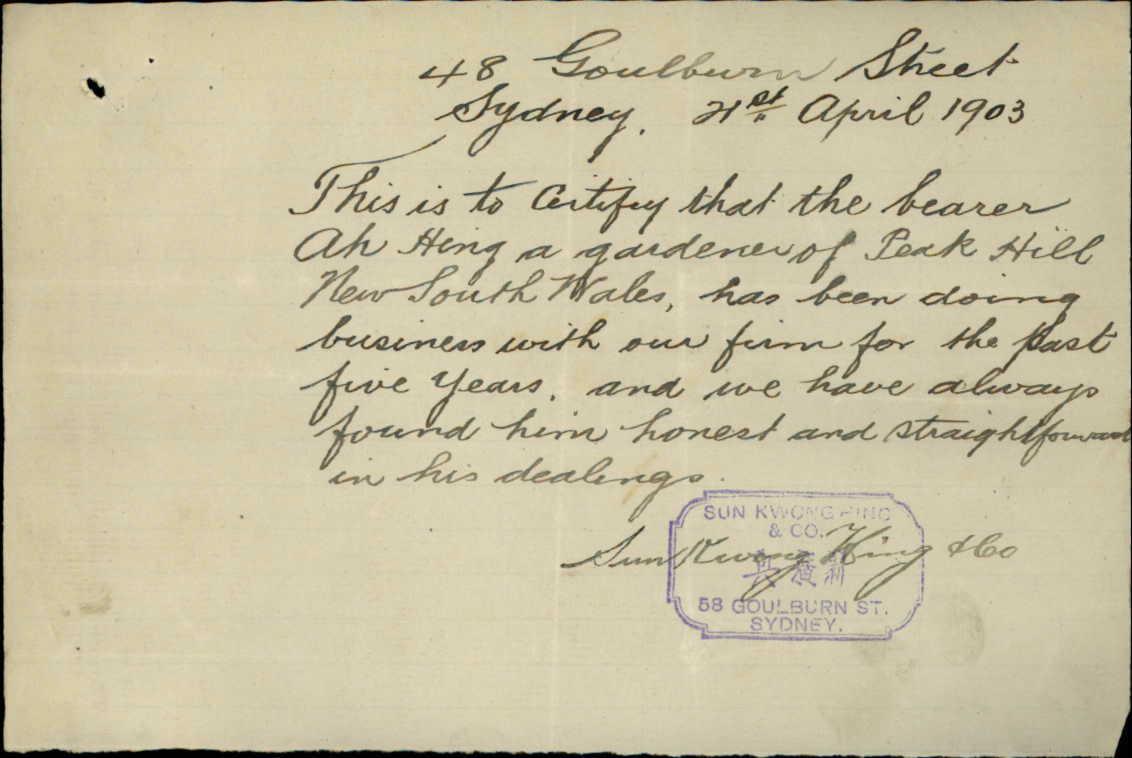 48 Goulburn Street
Sydney. 21st April 1903
This is to certify that the bearer
Ah Hing a gardener of Peak Hill
New South Wales, has been doing
business with our firm for the past
five years, and we have always
found him honest and straightforward
in his dealings.
Sun Kwong Hing & Co
SUN KWONG HING
& CO.
新廣
58 GOULBURN ST.
SYDNEY.